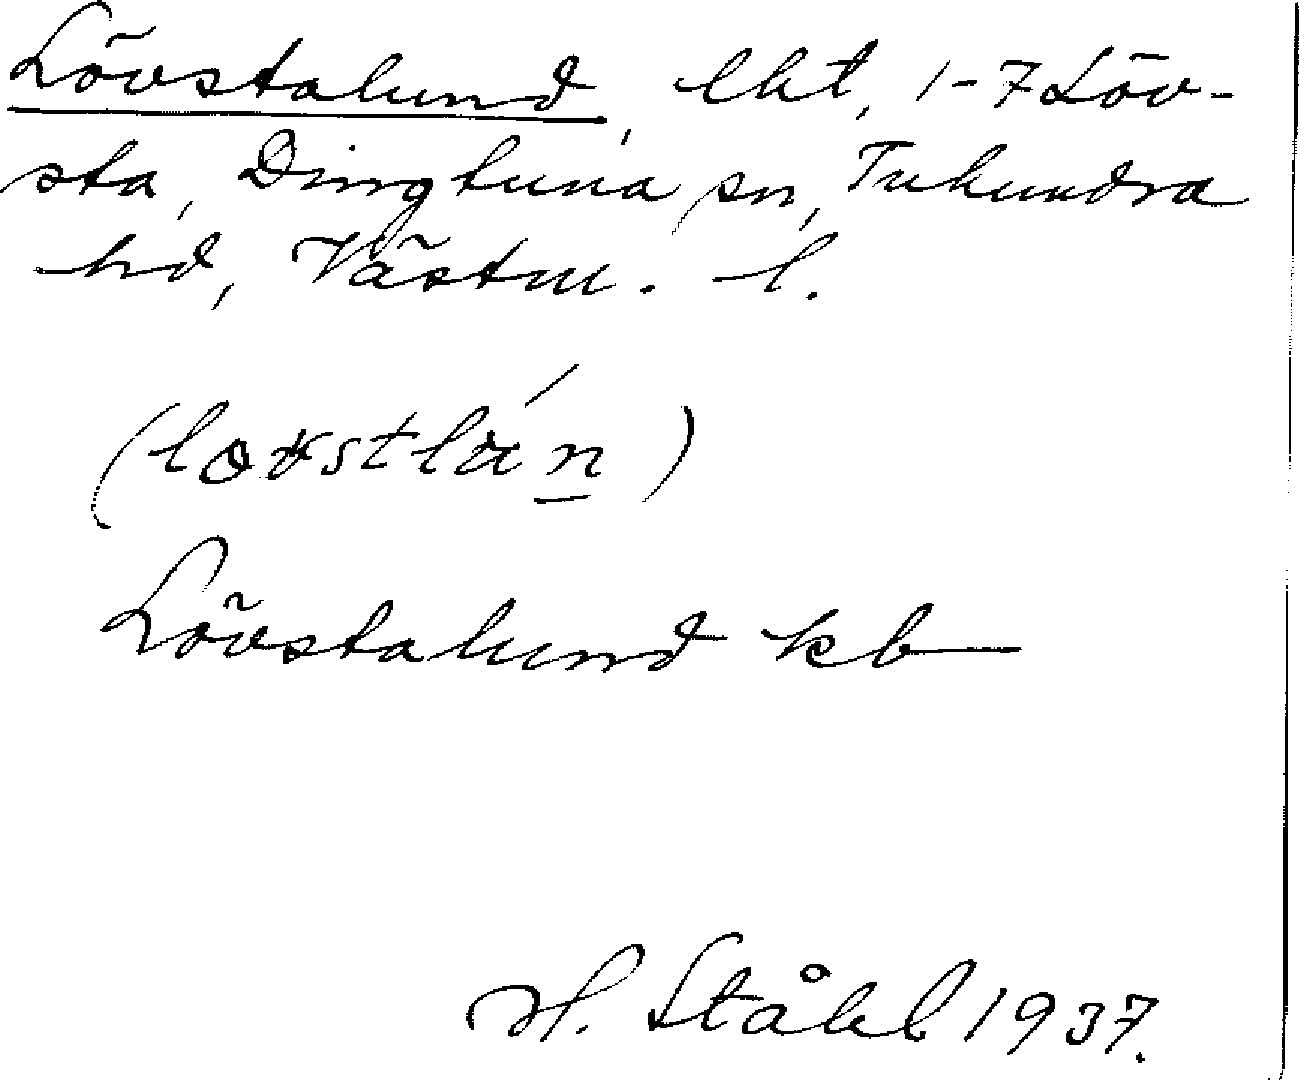 Lövstalund, lht, 1-7 Löv-
sta, Dingtuna sn, Tuhundra
hd, Västm. l.
Lövstalund kb
H. Ståhl 1937.